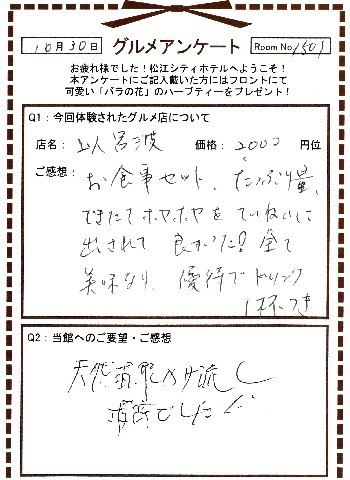 10月30日 グルメアンケート Room No.1501
お疲れ様でした！松江シティホテルへようこそ！
本アンケートにご記入戴いた方にはフロントにて
可愛い「バラの花」のハーブティーをプレゼント！
Q1：今回体験されたグルメ店について
店名： 呂波 価格： 2000 円位
ご感想： お食事セット、たっぷり量、
できたてホヤホヤをていねいに
出されて 良かった！全て
美味なり、優待でドリンク
1杯つき
Q2：当館へのご要望・ご感想
天然 かけ流し
でした